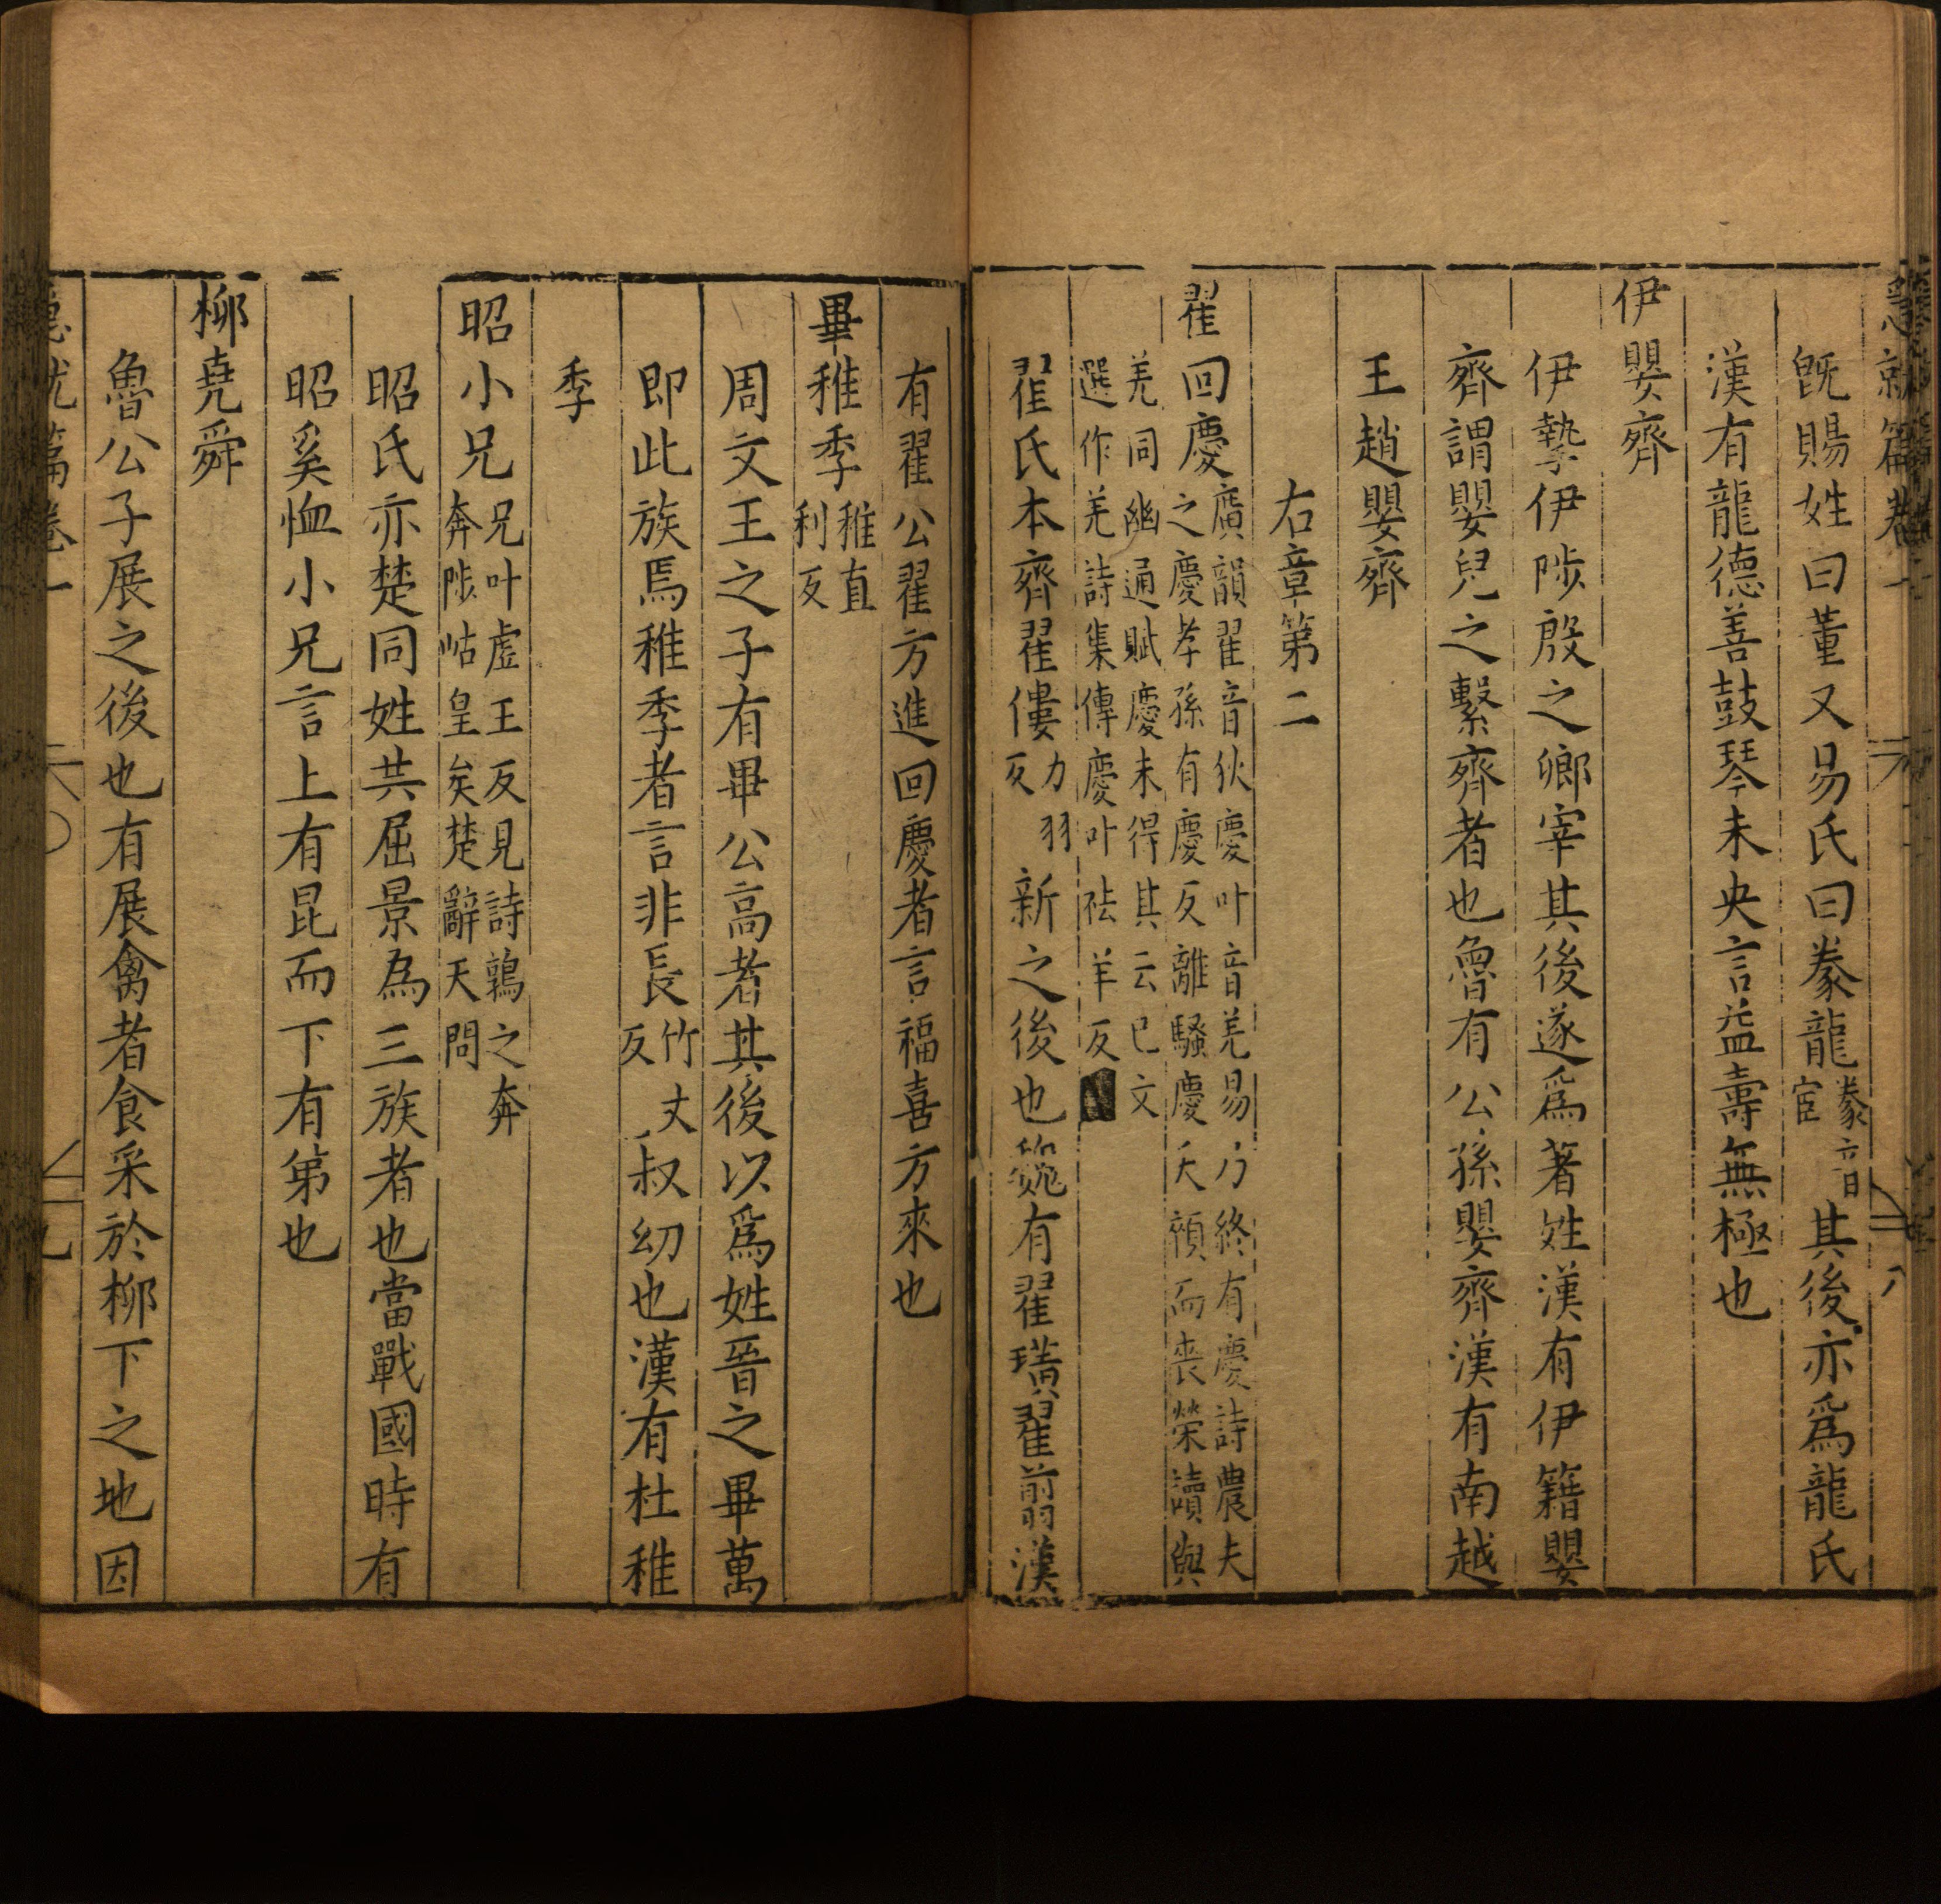 急就篇卷一
既賜姓曰董又易氏曰豢龍豢音宦其後亦爲龍氏
漢有龍德善鼓琴未央言益壽無極也
伊嬰齊
伊摯伊陟殷之卿宰其後遂爲著姓漢有伊籍嬰
齊謂嬰兒之繫齊者也魯有公孫嬰齊漢有南越
王趙嬰齊
右章第二
翟回慶廣韻翟音狄慶叶音羌易乃終有慶詩農夫
之慶孝孫有慶反離騷慶夭顇而喪榮讀與
羌同幽通賦慶未得其云已文
選作羌詩集傳慶叶祛羊反
翟氏本齊翟僂力羽反新之後也魏有翟璜翟翦漢
有翟公翟方進回慶者言福喜方來也
畢稚季稚直利反
周文王之子有畢公高者其後以爲姓晉之畢萬
即此族焉稚季者言非長竹丈反叔幼也漢有杜稚
季
昭小兄兄叶虛王反見詩鶉之奔
奔陟岵皇矣楚辭天問
昭氏亦楚同姓共屈景為三族者也當戰國時有
昭奚恤小兄言上有昆而下有第也
柳堯舜
魯公子展之後也有展禽者食采於柳下之地因
急就篇卷一